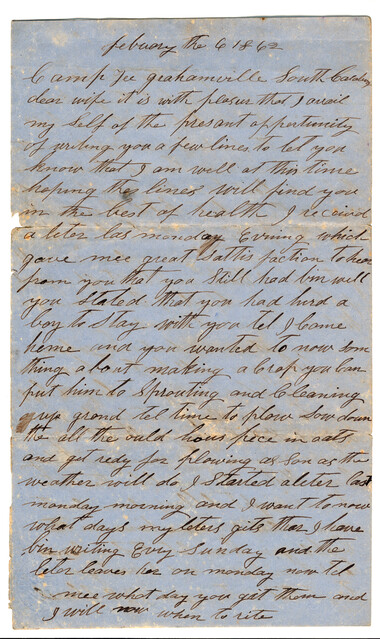 febuary the 6 1862
Camp Lee grahamville South Carolina
dear wife it is with plesur that I avail
my self of the presant opportunity
of writing you a few lines to let you
know that I am well at this time
hoping the lines will find you
in the best of health I receivd
a leter las monday Evining which
gave mee great sattisfaction to hear
from you that you still had bin well
you stated that you had hird a
boy to stay with you tel I came
home and you wanted to now som
thing about making a crop you can
put him to sprouting and cleaning
up grond tel time to plow sow down
the all the ould hous pece in oats
and get redy for plowing as son as the
weather will do I started a leter last
monday morning and I want to now
what days my leters gits thar I have
bin writing Evry Sunday and the
leter leaves her on monday now tel
mee what day you get them and
I will now when to rite